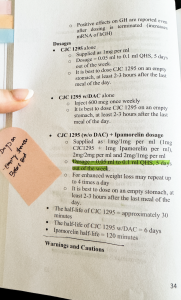 ○ Positive effects on GH are reported even
after dosing is terminated (increases
mRNA of hGH)
Dosages
• CJC 1295 alone
○ Supplied as 1mg per ml
○ Dosage = 0.05 ml to 0.1 ml QHS, 5 days
out of the week.
○ It is best to dose CJC 1295 on an empty
stomach, at least 2-3 hours after the last
meal of the day.
• CJC 1295 w/DAC / alone
○ Inject 600 mcg once weekly
○ It is best to dose CJC 1295 on an empty
stomach, at least 2-3 hours after the last
meal of the day.
• CJC 1295 (w/o DAC) + Ipamorelin dosage
○ Supplied as 1mg/1mg per ml (1mg
CJC1295 + 1mg Ipamorelin per ml),
2mg/2mg per ml and 2mg/1mg per ml
○ Dosage = 0.05 ml to 0.1 ml QHS, 5 days
out of the week.
○ For enhanced weight loss may repeat up
to 4 times a day
○ It is best to dose on an empty stomach, at
least 2-3 hours after the last meal of the
day.
• The half-life of CJC 1295 = approximately 30
minutes
• The half-life of CJC 1295 w/DAC = 6 days
• Ipamorelin half-life = 120 minutes
Warnings and Cautions
34